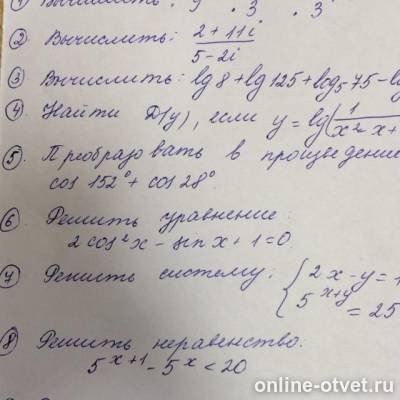 ① Вычислить: 9 · 3 · 3
② Вычислить: 2 + 11i
5 - 2i
③ Вычислить: lg 8 + lg 125 + log₅ 75 - lo
④ Найти D(y), если y = lg(1
x² - x +
⑤ Преобразовать в произведение
cos 152° + cos 28°.
⑥ Решить уравнение:
2 cos² x - sin x + 1 = 0.
⑦ Решить систему: { 2x - y = 1
5^(x+y) = 25
⑧ Решить неравенство:
5^(x+1) - 5^x < 20
online-otvet.ru